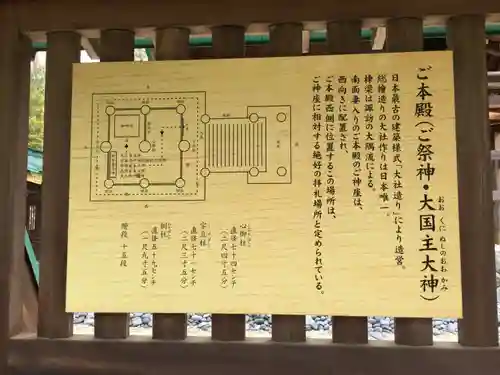 ご本殿(ご祭神・大国主大神)
おお くに ぬしのおお かみ
日本最古の建築様式「大社造り」により造営。
総檜造りの大社作りは日本唯一。
棟梁は諏訪の大隅流による。
南面妻入りのご本殿のご神座は、
西向きに配置され、
ご本殿西側に位置するこの場所は、
ご神座に相対する絶好の拝礼場所と定められている。
心御柱
直径七十四センチ
(二尺四寸五分)
宇豆柱
直径七十一センチ
(二尺三寸五分)
側柱
直径五十九センチ
(一尺九寸五分)
階段 十五段